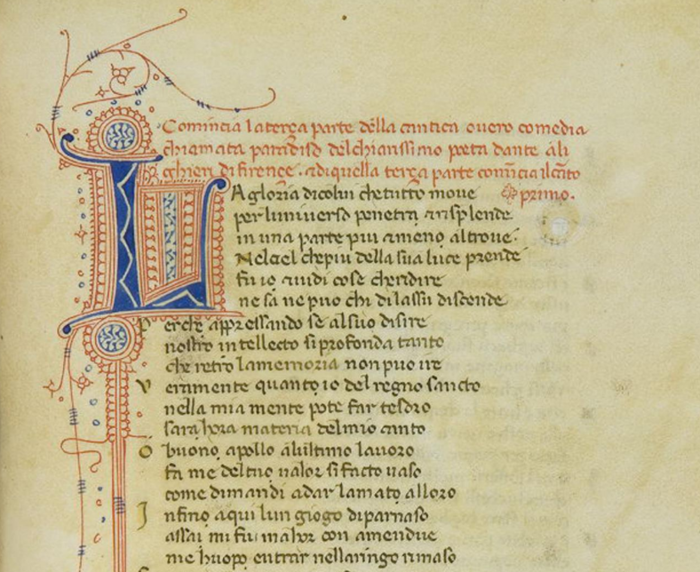 Comincia la terça parte della cantica overo comedia
chiamata paradiso del chiarissimo poeta dante ali
ghieri di firençe. et di quella terça parte comĩcia il cãto
primo.
LA gloria di colui che tutto move
per luniverso penetra et risplende
in una parte piu et meno altrove.
Nel ciel che piu della sua luce prende
fu io et vidi cose che ridire
ne sa ne puo chi di lassu discende
Perche appressando se al suo disire
nostro intellecto si profonda tanto
che retro la memoria non puo ire
Veramente quanto io del regno sancto
nella mia mente pote far tesoro
sara hora materia del mio canto
O buono apollo alultimo lavoro
fa me del tuo valor si facto vaso
come dimandi a dar lamato alloro
Infino a qui lun giogo di parnaso
assai mi fu ma hor con amendue
me huopo entrar nellaringo rimaso